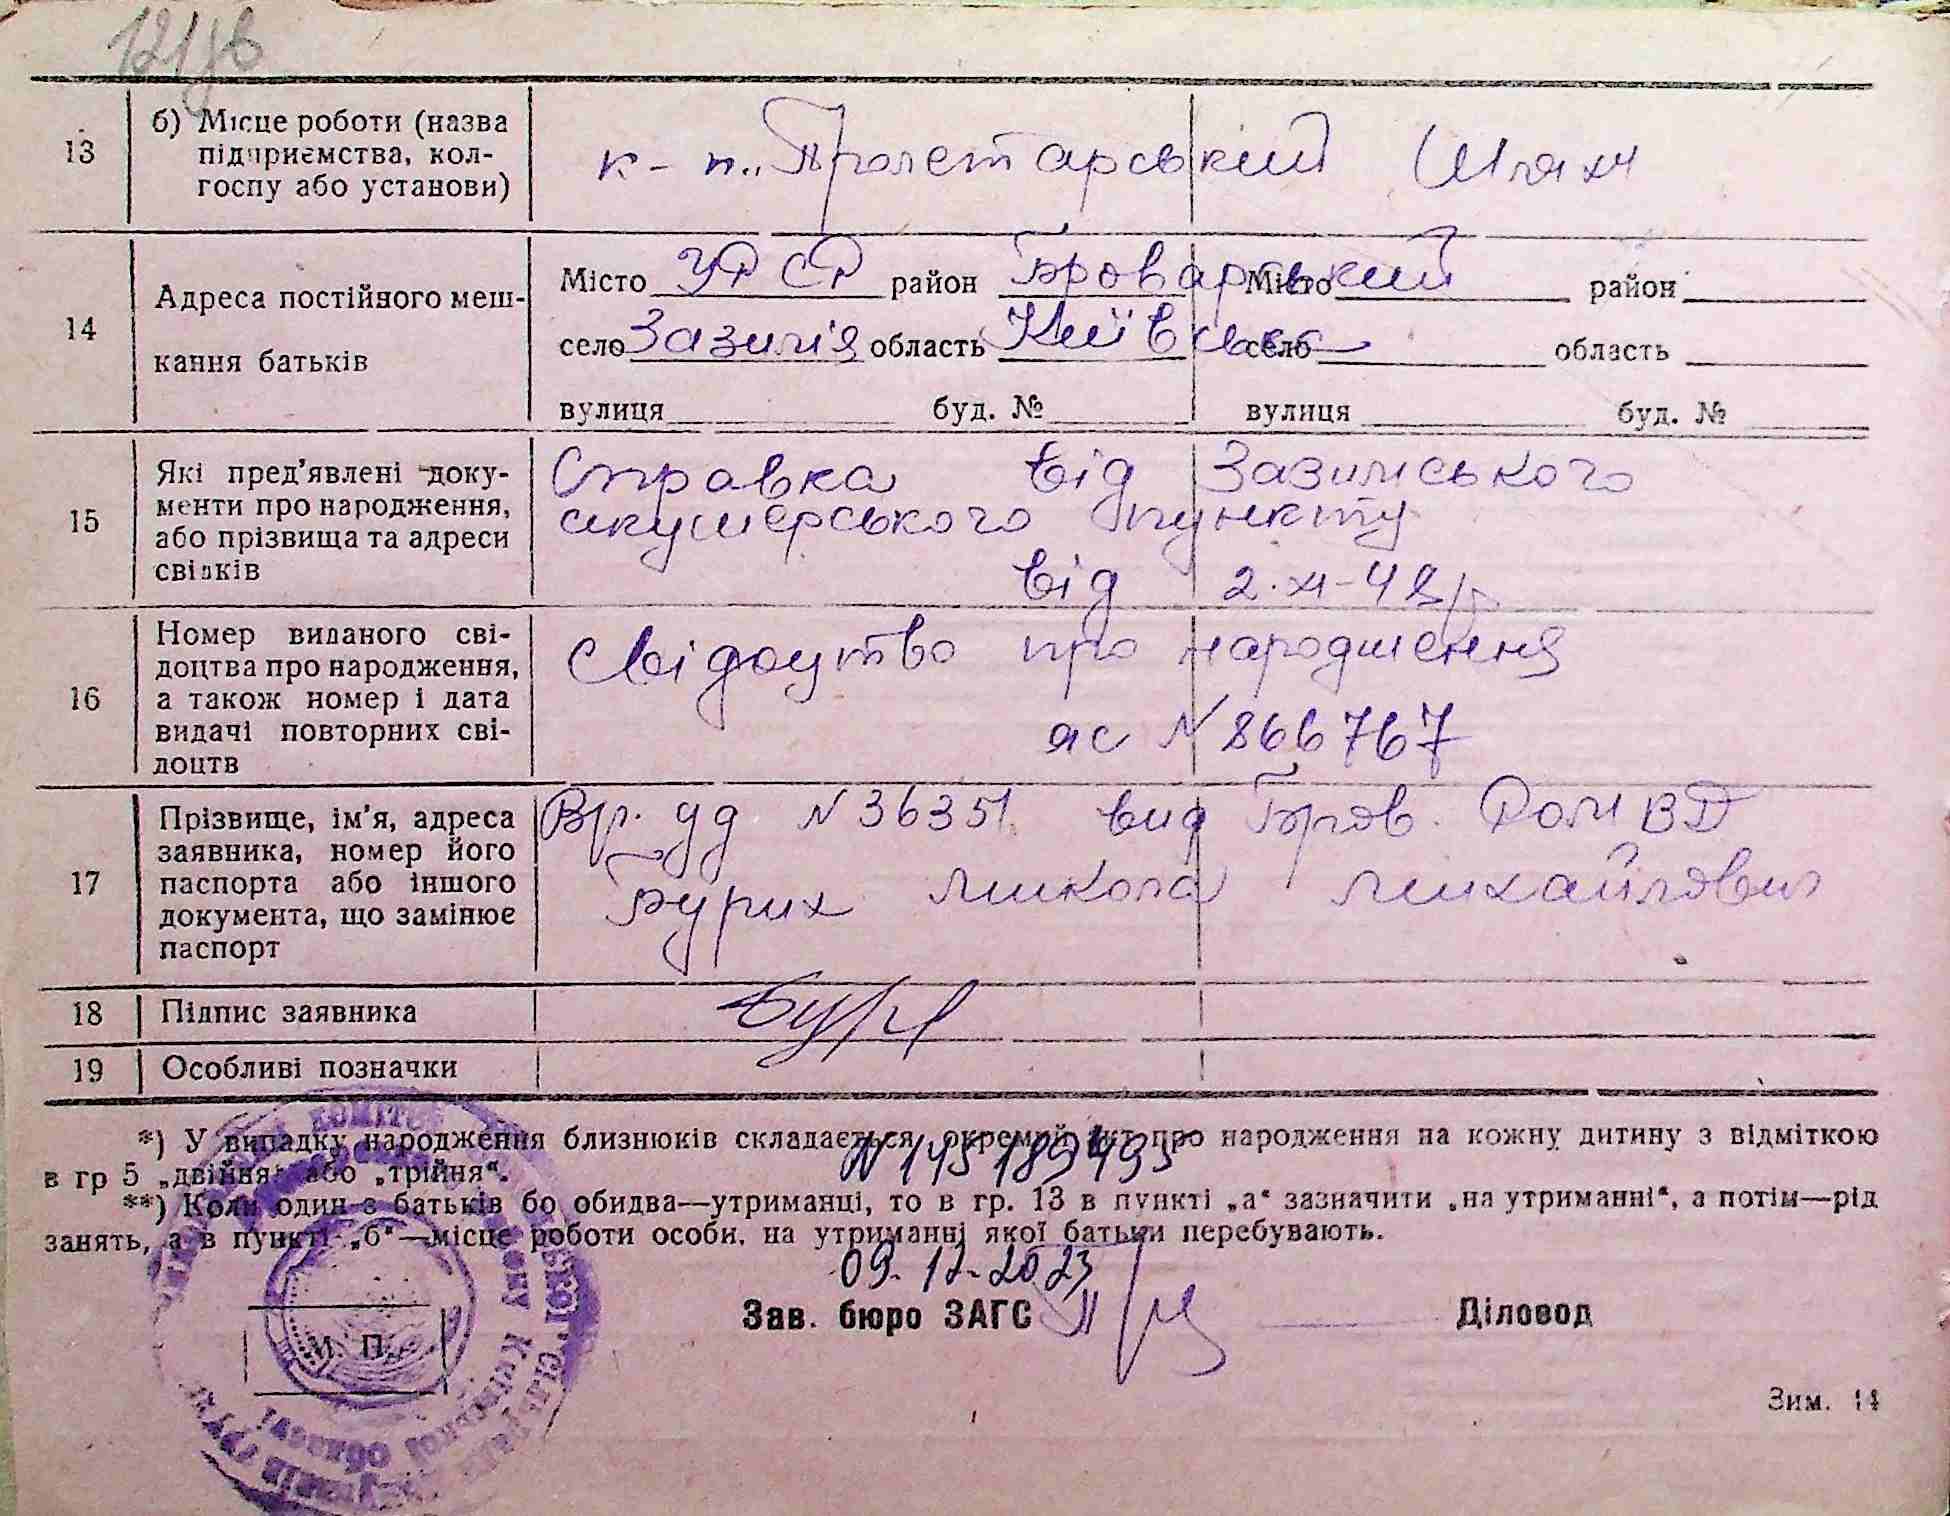 121 зв
13
б) Місце роботи (назва
підприємства, кол-
госпу або установи)
к-п „Пролетарський Шлях
14
Адреса постійного меш-
кання батьків
Місто УРСР район Броварський Місто район
село Зазим'я область Київська село область
вулиця буд. № вулиця буд. №
15
Які пред'явлені доку-
менти про народження,
або прізвища та адреси
свідків
Справка від Зазимського
акушерського пункту
від 2.XI-48р
16
Номер виданого сві-
доцтва про народження,
а також номер і дата
видачі повторних сві-
доцтв
Свідоцтво про народження
яс № 866767
17
Прізвище, ім'я, адреса
заявника, номер його
паспорта або іншого
документа, що замінює
паспорт
Вр. уд № 36351 вид Бров. РОМВД
Бурих Микола Михайлович
18
Підпис заявника
19
Особливі позначки
*) У випадку народження близнюків складається окремий акт про народження на кожну дитину з відміткою
в гр 5 „двійня“ або „трійня“.
N 145189495
**) Коли один з батьків бо обидва—утриманці, то в гр. 13 в пункті „а“ зазначити „на утриманні“, а потім—рід
занять, а в пункті „б“—місце роботи особи, на утриманні якої батьки перебувають.
09.12.2023
Зав. бюро ЗАГС Діловод
М. П.
Зим. 14